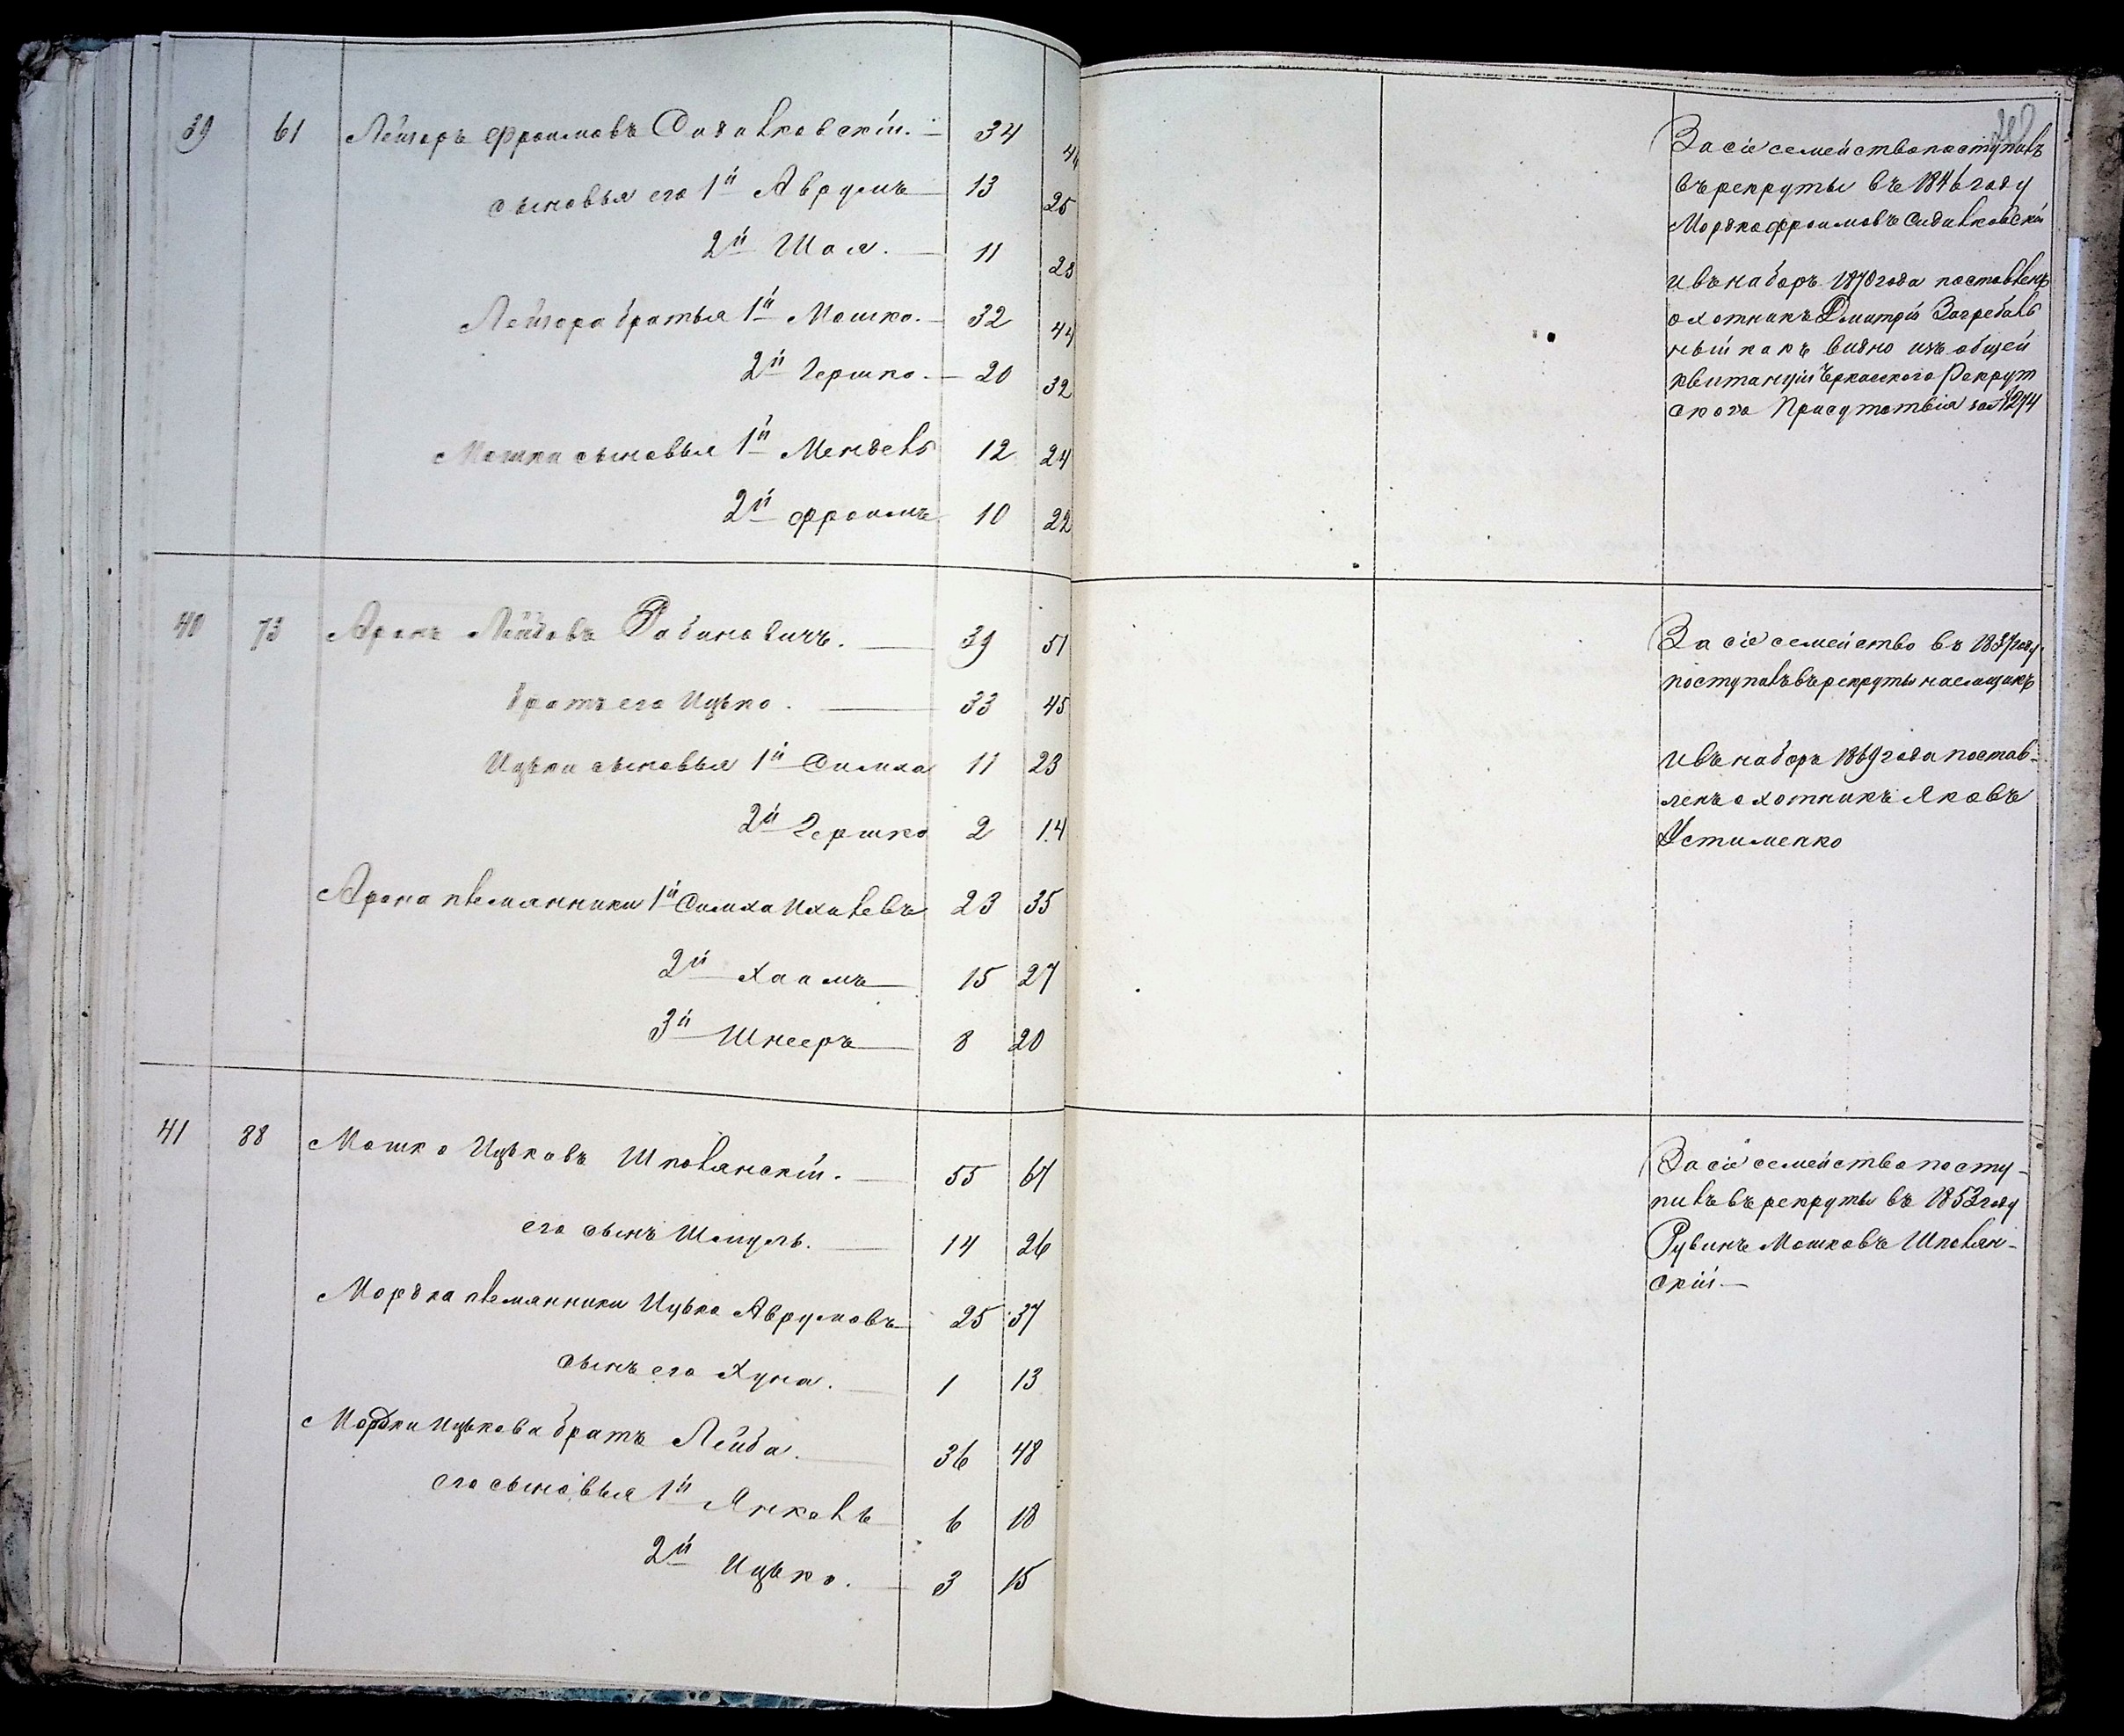 39 61 Лейзоръ Фроимовъ Сидалковскій. 34 46
сыновья его 1й Аврумъ 13 25
2й Шая. 11 23
Лейзора братья 1й Мошко. 32 44
2й Гершко. 20 32
Мошки сыновья 1й Мендель 12 24
2й Фроимъ 10 22
40 73 Аронъ Лейбовъ Рабиновичъ. 39 51
братъ его Ицько. 33 45
Ицьки сыновья 1й Симха 11 23
2й Гершко 2 14
Арона племянники 1й Симха Ихилевъ 23 35
2й Хаимъ 15 27
3й Шнееръ 8 20
41 88 Мошко Ицьковъ Шполянскій. 55 67
его сынъ Шмуль. 14 26
Мордка племянники Ицько Аврумовъ 25 37
сынъ его Хуна. 1 13
Мордки Ицькова братъ Лейба. 36 48
его сыновья 1й Янкель 6 18
2й Ицько. 3 15
За сіе семейство поступилъ
въ рекруты въ 1846 году
Мордко Фроимовъ Сидалковскій
и въ наборъ 1870 года поставленъ
охотникъ Дмитрій Загребель
ный какъ видно изъ общей
квитанціи Черкаского Рекрут
ского Присутствія за № 1274
За сіе семейство въ 1837 году
поступилъ въ рекруты наемщикъ
и въ наборъ 1869 года постав-
ленъ охотникъ Яковъ
Устименко
За сіе семейство посту-
пилъ въ рекруты въ 1853 году
Рувинъ Мошковъ Шполян-
скій